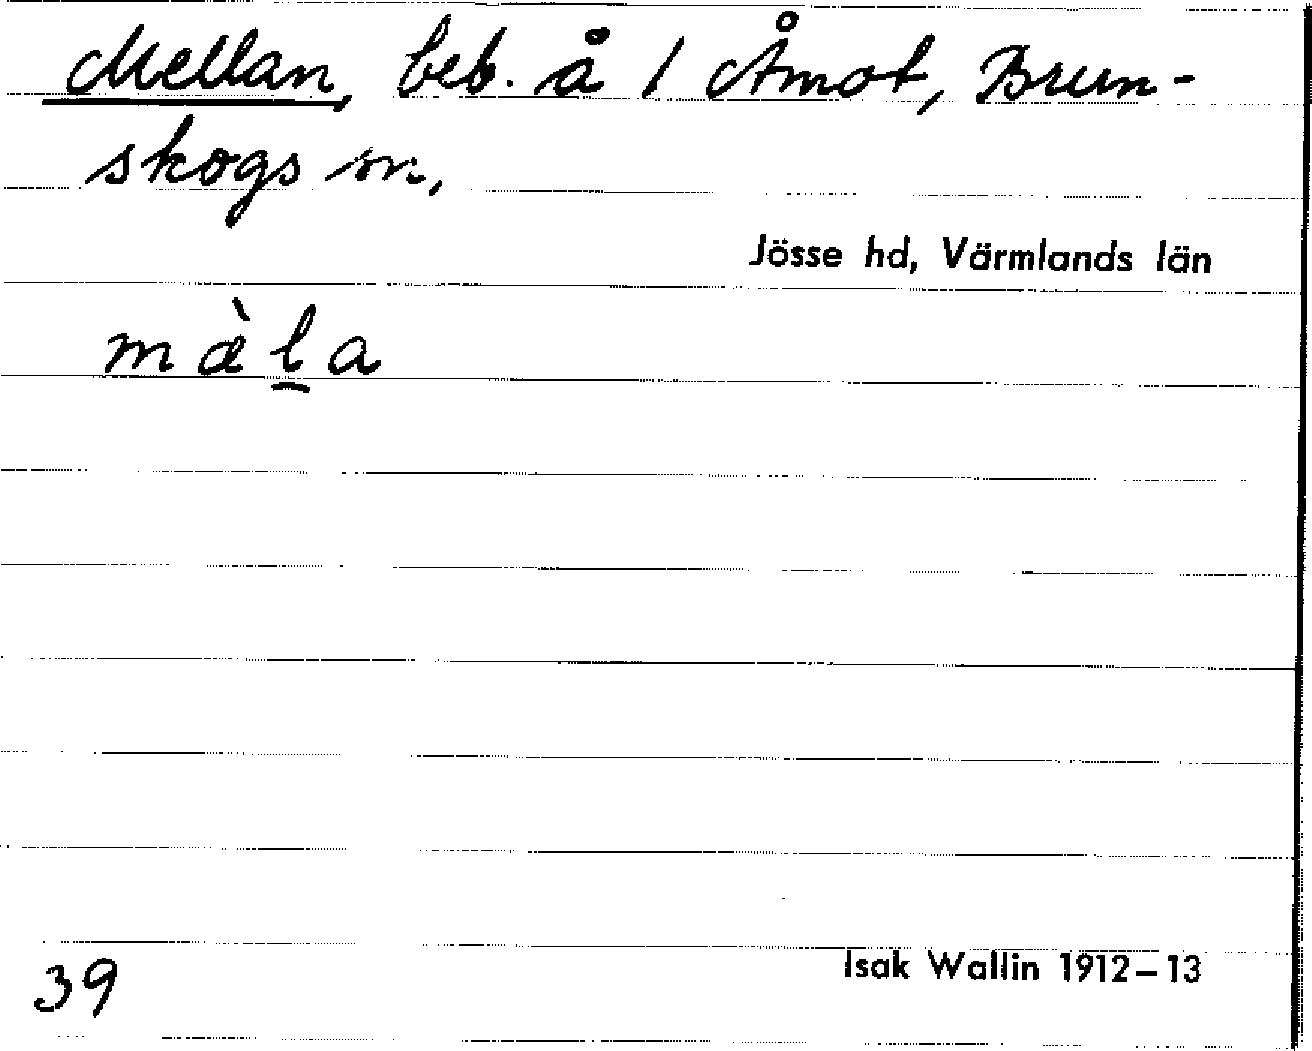 Mellan, beb. å 1 Åmot, Brun-
skogs sn,
Jösse hd, Värmlands län
mæ̀l̲a
39
Isak Wallin 1912–13